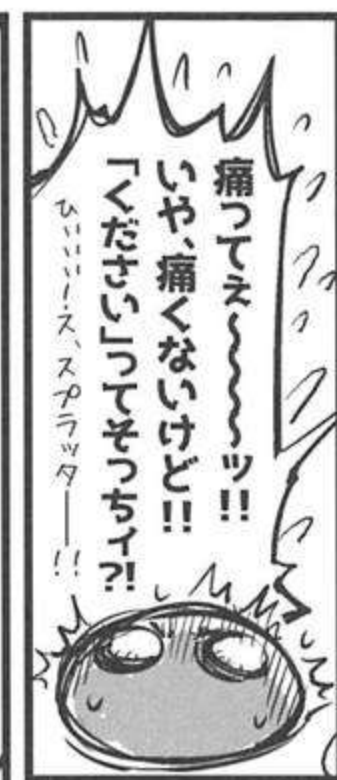 痛ってえ～～～～ッ!!
いや、痛くないけど!!
「ください」ってそっちィ?!
ひいいい!ス、スプラッター――!!